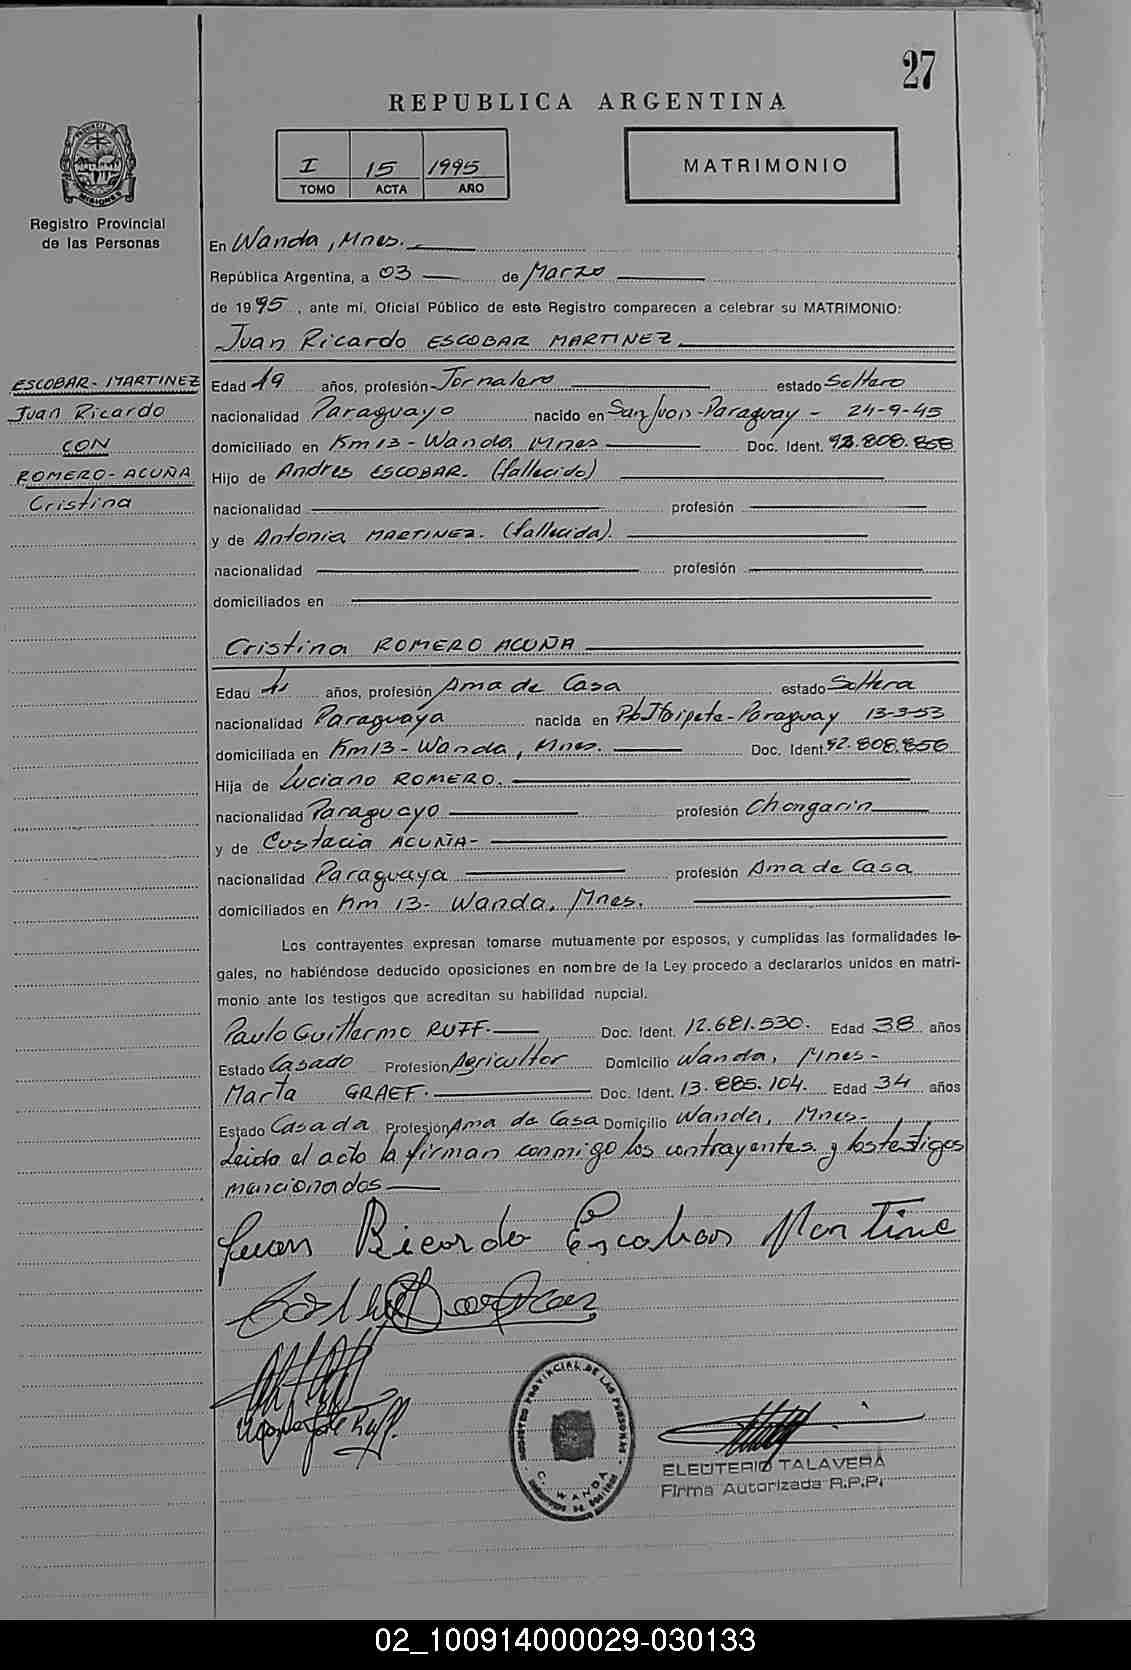 27
REPUBLICA ARGENTINA
I 15 1995
TOMO ACTA AÑO
MATRIMONIO
PROVINCIA DE MISIONES
Registro Provincial
de las Personas
En Wanda, Mnes.
República Argentina, a 03 de Marzo
de 1995, ante mí, Oficial Público de este Registro comparecen a celebrar su MATRIMONIO:
Juan Ricardo ESCOBAR MARTINEZ
ESCOBAR-MARTINEZ
Juan Ricardo
CON
ROMERO-ACUÑA
Cristina
Edad años, profesión Jornalero estado Soltero
nacionalidad Paraguayo nacido en San Juan-Paraguay - 24-9-45
domiciliado en Km 13 - Wanda, Mnes Doc. Ident. 92.808.858
Hijo de Andres ESCOBAR. (fallecido)
nacionalidad profesión
y de Antonia MARTINEZ. (fallecida).
nacionalidad profesión
domiciliados en
Cristina ROMERO ACUÑA
Edad años, profesión Ama de Casa estado Soltera
nacionalidad Paraguaya nacida en -Paraguay 13-3-53
domiciliada en Km13-Wanda, Mnes. Doc. Ident. 92.808.856
Hija de Luciano ROMERO.
nacionalidad Paraguayo profesión
y de Eustacia ACUÑA-
nacionalidad Paraguaya profesión Ama de Casa
domiciliados en Km 13- Wanda, Mnes.
Los contrayentes expresan tomarse mutuamente por esposos, y cumplidas las formalidades le-
gales, no habiéndose deducido oposiciones en nombre de la Ley procedo a declararlos unidos en matri-
monio ante los testigos que acreditan su habilidad nupcial.
Paulo Guillermo RUFF. Doc. Ident. 12.681.530. Edad 38 años
Estado Casado Profesión Agricultor Domicilio Wanda, Mnes-
Marta GRAEF. Doc. Ident. 13.885.104. Edad 34 años
Estado Casada Profesión Ama de Casa Domicilio Wanda, Mnes-
Leida el acto la firman conmigo los contrayentes y los testigos
mencionados
Juan Ricardo Escobar Martine
REGISTRO PROVINCIAL DE LAS PERSONAS
C. WANDA
ELEUTERIO TALAVERA
Firma Autorizada R.P.P.
02_100914000029-030133